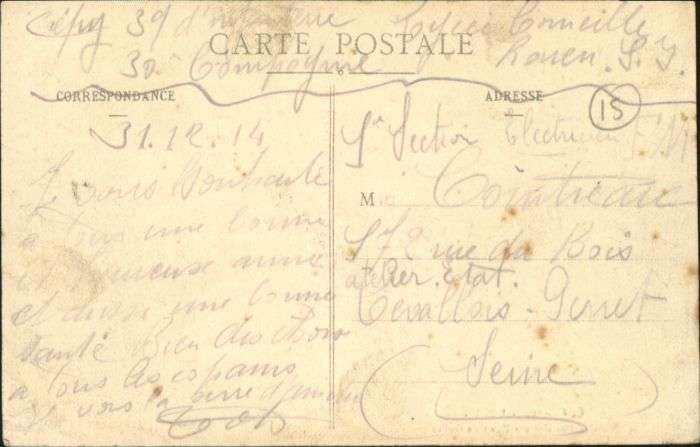 39 d'infanterie Lycée Corneille
CARTE POSTALE
30 Compagnie Rouen. S. I.
CORRESPONDANCE
ADRESSE
15
31.12.14
Je vous souhaite
à tous une bonne
et heureuse année
et aussi une bonne
santé Bien des
à tous les copains
vous
Sr Section Electricien
M
Cointreau
57 rue du Bois
atelier. Etat.
Levallois-Perret
Seine